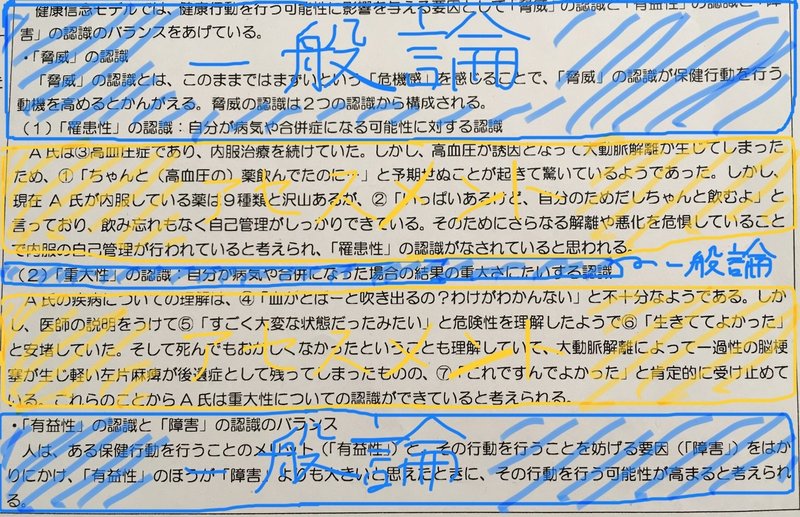 健康信念モデルでは、健康行動を行う可能性に影響を与える要因として「脅威」の認識と「有益性」の認識と「障
害」の認識のバランスをあげている。
一般論
・「脅威」の認識
「脅威」の認識とは、このままではまずいという「危機感」を感じることで、「脅威」の認識が保健行動を行う
動機を高めるとかんがえる。脅威の認識は２つの認識から構成される。
（１）「罹患性」の認識：自分が病気や合併症になる可能性に対する認識
A 氏は③高血圧症であり、内服治療を続けていた。しかし、高血圧が誘因となって大動脈解離が生じてしまった
ため、①「ちゃんと（高血圧の）薬飲んでたのに…」と予期せぬことが起きて驚いているようであった。しかし、
アセスメント
現在 A 氏が内服している薬は９種類と沢山あるが、②「いっぱいあるけど、自分のためだしちゃんと飲むよ」と
言っており、飲み忘れもなく自己管理がしっかりできている。そのためにさらなる解離や悪化を危惧していること
で内服の自己管理が行われていると考えられ、「罹患性」の認識がなされていると思われる。
（２）「重大性」の認識：自分が病気や合併になった場合の結果の重大さにたいする認識
一般論
A 氏の疾病についての理解は、④「血がどばーと吹き出るの？わけがわかんない」と不十分なようである。しか
し、医師の説明をうけて⑤「すごく大変な状態だったみたい」と危険性を理解したようで⑥「生きててよかった」
アセスメント
と安堵していた。そして死んでもおかしくなかったということも理解していて、大動脈解離によって一過性の脳梗
塞が生じ軽い左片麻痺が後遺症として残ってしまったものの、⑦「これですんでよかった」と肯定的に受け止めて
いる。これらのことから A 氏は重大性についての認識ができていると考えられる。
・「有益性」の認識と「障害」の認識のバランス
人は、ある保健行動を行うことのメリット（「有益性」）と、その行動を行うことを妨げる要因（「障害」）をはか
一般論
りにかけ、「有益性」のほうが「障害」よりも大きいと思えたときに、その行動を行う可能性が高まると考えられ
る。